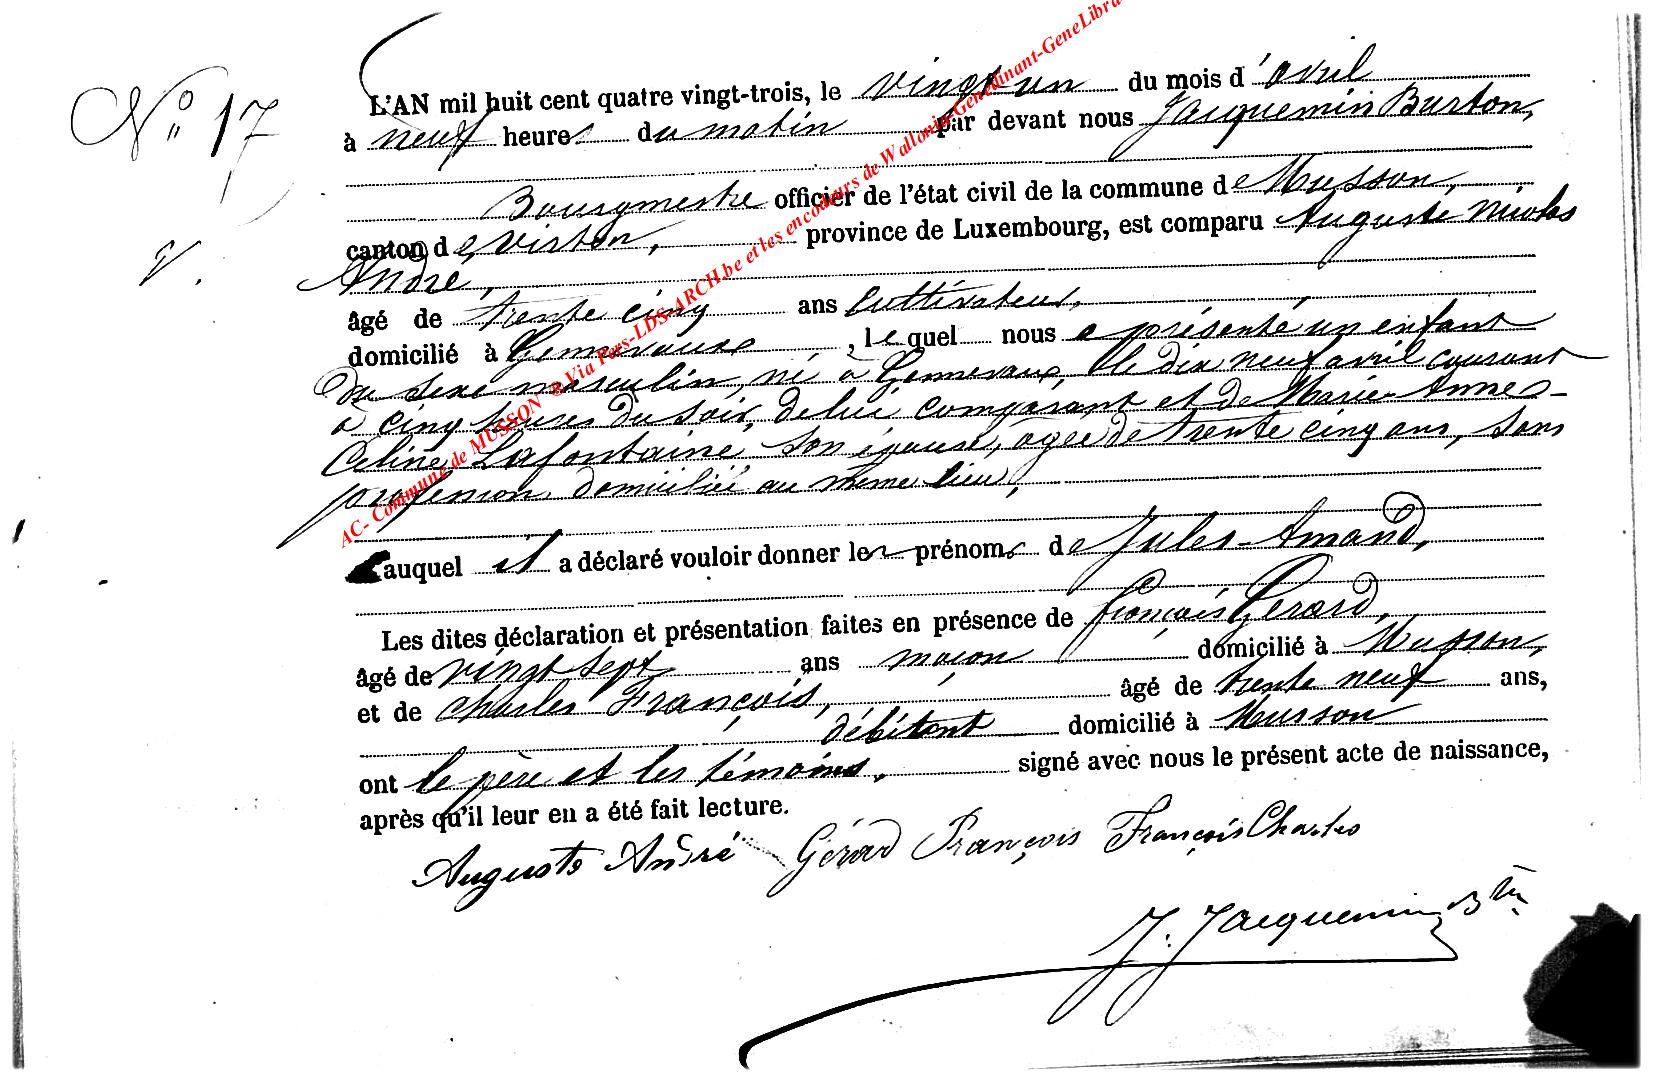 N° 17
V.
L'AN mil huit cent quatre vingt-trois, le vingt un du mois d'avril
à neuf heures du matin par devant nous Jacquemin Burton,
Bourgmestre officier de l'état civil de la commune de Musson,
canton de Virton, province de Luxembourg, est comparu Auguste Nicolas
André,
âgé de trente cinq ans cultivateur,
domicilié à Gennevaux, lequel nous a présenté un enfant
du sexe masculin, né à Gennevaux, le dix neuf avril courant
à cinq heures du soir, de lui comparant et de Marie-Anne-
Celine Lafontaine son épouse, agée de trente cinq ans, sans
profession domiciliée au même lieu,
auquel il a déclaré vouloir donner les prénoms de Jules-Amand,
Les dites déclaration et présentation faites en présence de françois Gerard,
âgé de vingt sept ans maçon domicilié à Musson,
et de Charles François, âgé de trente neuf ans,
débitant domicilié à Musson
ont le père et les témoins, signé avec nous le présent acte de naissance,
après qu'il leur en a été fait lecture.
Auguste André Gérard François François Charles
J. Jacquemin Btn
AC- Commune de MUSSON ® Via Pers-LDS-ARCH.be et les encodeurs de Wallonia-Genedinant-GeneLibra